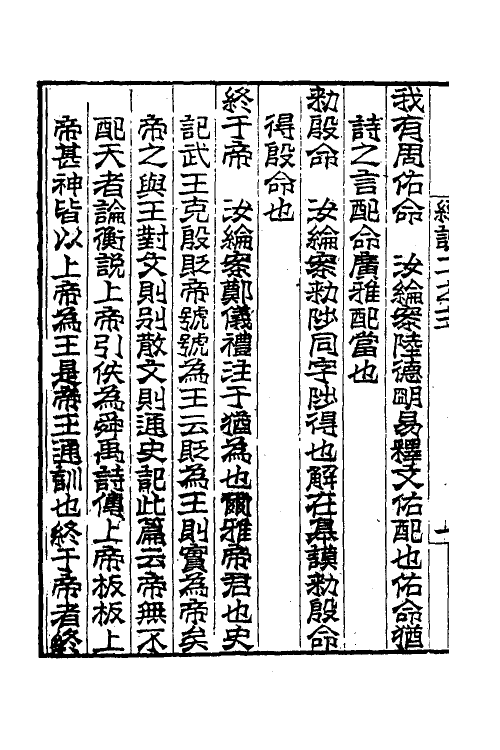 我有周佑命　汝綸案陸德明易釋文佑配也佑命猶
詩之言配命廣雅配當也
勑殷命　汝綸案勑陟同字陟得也解在臯謨勑殷命
得殷命也
終于帝　汝綸案鄭儀禮注于猶為也爾雅帝君也史
記武王克殷貶帝號號為王云貶為王則實為帝矣
帝之與王對文則别散文則通史記此篇云帝無不
配天者論衡說上帝引佚為舜禹詩傳上帝板板上
帝甚神皆以上帝為王是帝王通訓也終于帝者終